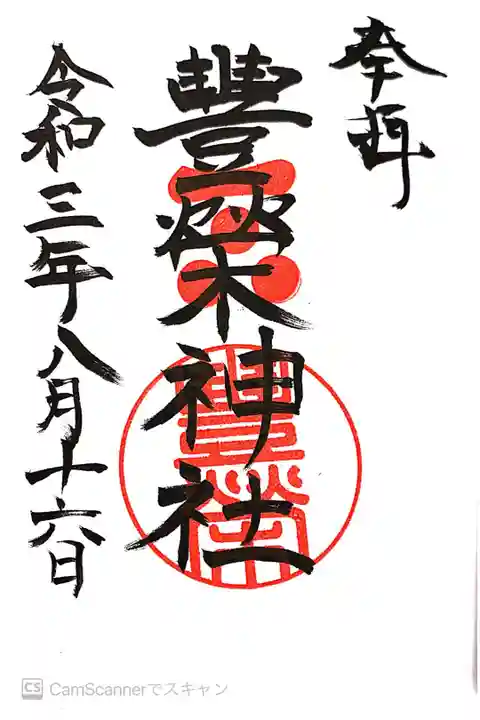 奉拝
豊榮神社
豊榮
令和三年八月十六日
CS CamScannerでスキャン